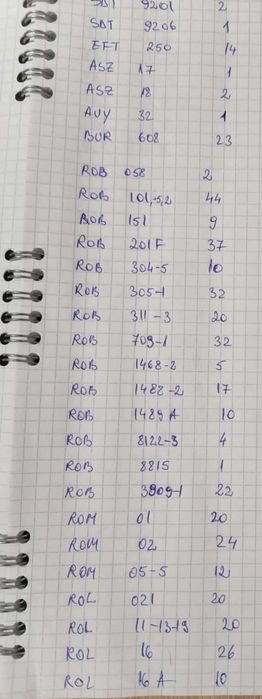 SDT 9201 2
SDT 9206 1
EFT 250 14
ASZ 17 1
ASZ 18 2
AUY 32 1
BUR 608 23
ROB 058 2
ROB 101,-5,2 44
ROB 151 9
ROB 201F 37
ROB 304-5 10
ROB 305-1 32
ROB 311-3 20
ROB 709-1 32
ROB 1468-2 5
ROB 1488-2 17
ROB 1489 A 10
ROB 8122-3 4
ROB 8815 1
ROB 3909-1 22
ROM 01 20
ROM 02 24
ROM 05-5 12
ROL 021 20
ROL 11-13-19 20
ROL 16 26
ROL 16 A 10